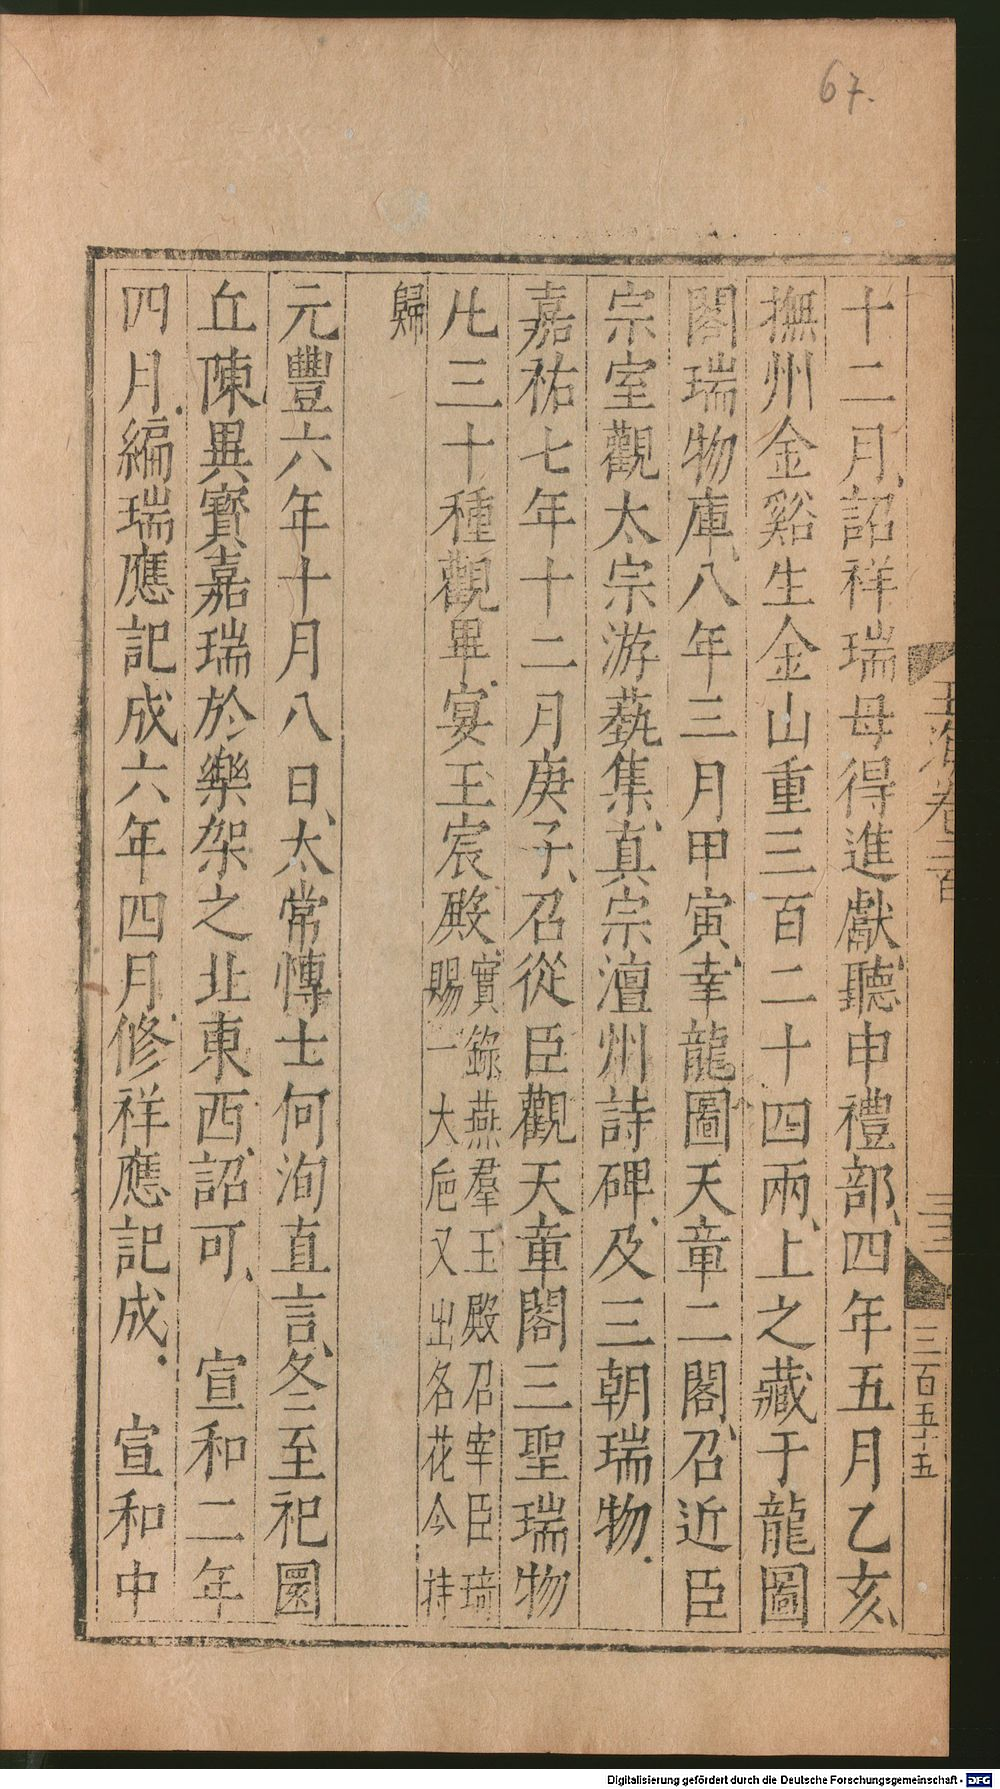 67.
玉海卷二百
三百五十五
十二月、詔祥瑞毋得進獻、聽申禮部、四年五月乙亥、
撫州金谿生金山重三百二十四兩、上之藏于龍圖
閣瑞物庫、八年三月甲寅、幸龍圖天章二閣、召近臣
宗室觀太宗游藝集、真宗澶州詩碑、及三朝瑞物.
嘉祐七年十二月庚子、召從臣觀天章閣三聖瑞物
凡三十種觀畢.宴玉宸殿、實錄燕羣玉殿召宰臣琦賜一大巵又出名花令持
歸
元豐六年十月八日、太常博士何洵直言、冬至祀圜
丘陳異寶嘉瑞於樂架之北東西、詔可、　宣和二年
四月.編瑞應記成六年四月.修祥應記成.　宣和中
Digitalisierung gefördert durch die Deutsche Forschungsgemeinschaft - DFG